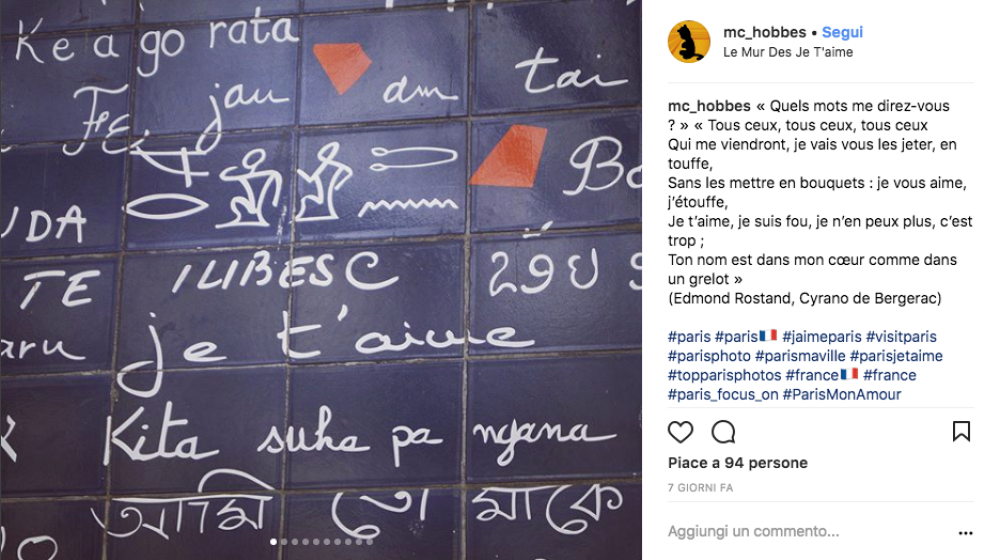 Ke a go rata
jau
dm
tai
Bo
UDA
TE
ILIBESC
je t'aime
Kita suka pa ngana
আমি তো মাকে
mc_hobbes • Segui
Le Mur Des Je T'aime
mc_hobbes « Quels mots me direz-vous
? » « Tous ceux, tous ceux, tous ceux
Qui me viendront, je vais vous les jeter, en
touffe,
Sans les mettre en bouquets : je vous aime,
j'étouffe,
Je t'aime, je suis fou, je n'en peux plus, c'est
trop ;
Ton nom est dans mon cœur comme dans
un grelot »
(Edmond Rostand, Cyrano de Bergerac)
#paris #paris🇫🇷 #jaimeparis #visitparis
#parisphoto #parismaville #parisjetaime
#topparisphotos #france🇫🇷 #france
#paris_focus_on #ParisMonAmour
Piace a 94 persone
7 GIORNI FA
Aggiungi un commento...